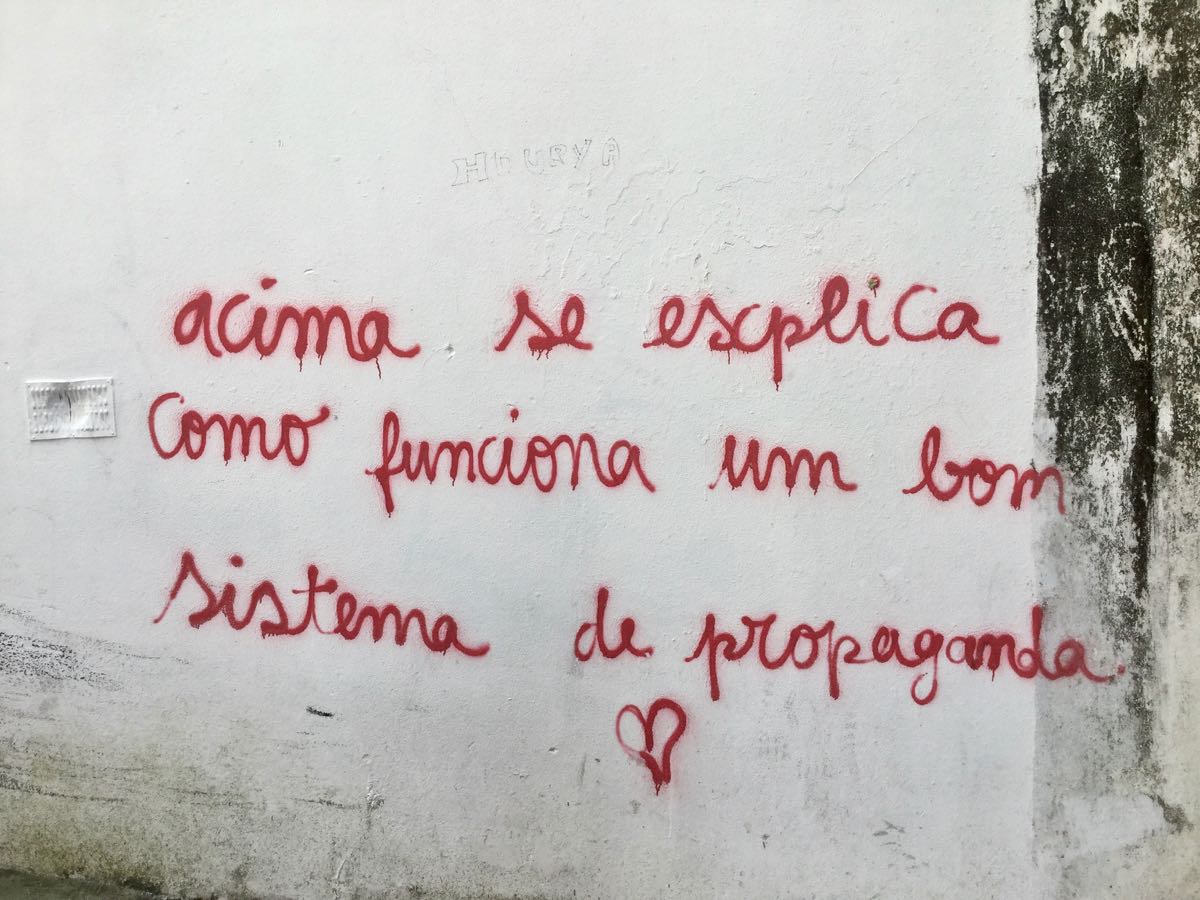 HOURYA
acima se explica
como funciona um bom
sistema de propaganda.